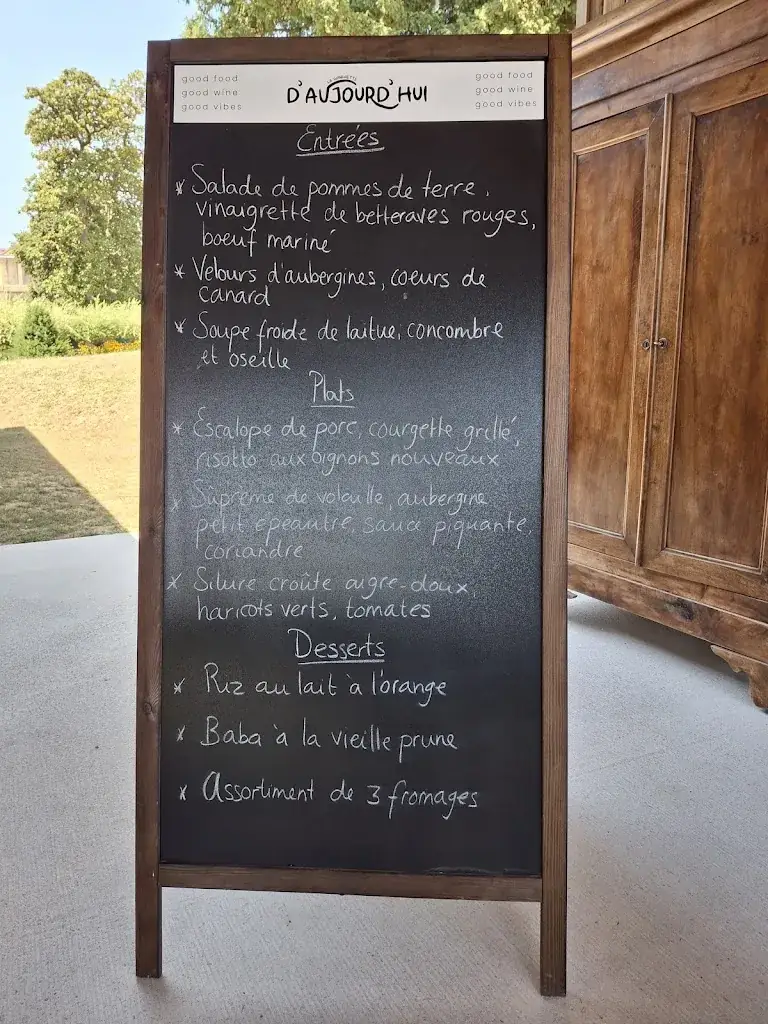 good food
good wine
good vibes
D'AUJOURD'HUI
good food
good wine
good vibes
Entrées
* Salade de pommes de terre,
vinaigrette de betteraves rouges,
boeuf mariné
* Velours d'aubergines, coeurs de
canard
* Soupe froide de laitue, concombre
et oseille
Plats
* Escalope de porc, courgette grillé,
risotto aux oignons nouveaux
* Suprême de volaille, aubergine
petit epeautre, sauce piquante,
coriandre
* Silure croûte aigre-doux,
haricots verts, tomates
Desserts
* Riz au lait à l'orange
* Baba à la vieille prune
* Assortiment de 3 fromages